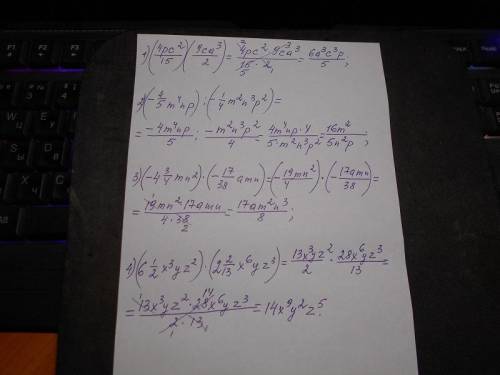 1) (4pc²/15)(9ca³/2) = 4pc²·9ca³/15·2 = 6a³c³p/5;
2) (-4/5 m⁴np) : (-1/4 m²n³p²) =
= -4m⁴np/5 : -m²n³p²/4 = 4m⁴np·4/5·m²n³p² = 16m²/5n²p;
3) (-4 3/4 mn²)·(-17/38 amn) = (-19mn²/4)·(-17amn/38) =
= 19mn²17amn/4·38 = 17am²n³/8;
4) (6 1/2 x³yz²)·(2 2/13 x⁶yz³) = 13x³yz²/2 · 28x⁶yz³/13 =
= 13x³yz²·28x⁶yz³/2·13 = 14x⁹y²z⁵.